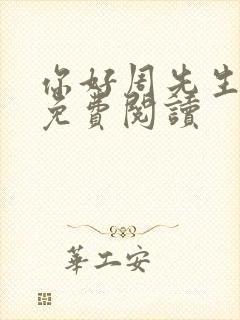 你好周先生
免費閱讀
華工安